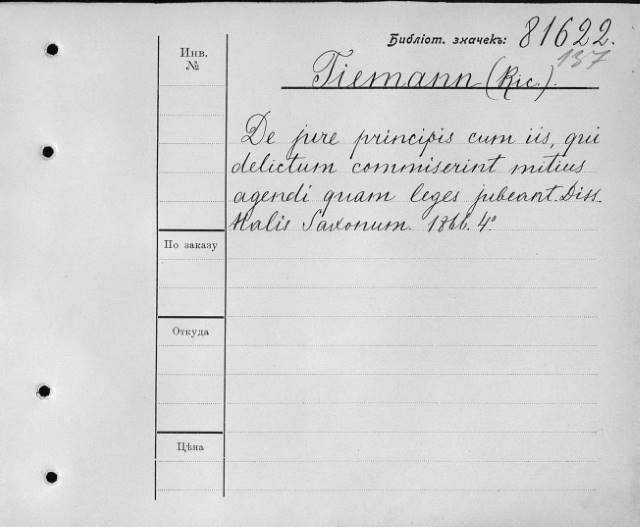 Библіот. значекъ: 81622.
137
Инв.
№
Tiemann (Ric.).
De jure principis cum iis, qui
delictum commiserint mitius
agendi quam leges jubeant. Diss.
Halis Saxonum. 1866. 4°
По заказу
Откуда
Цѣна